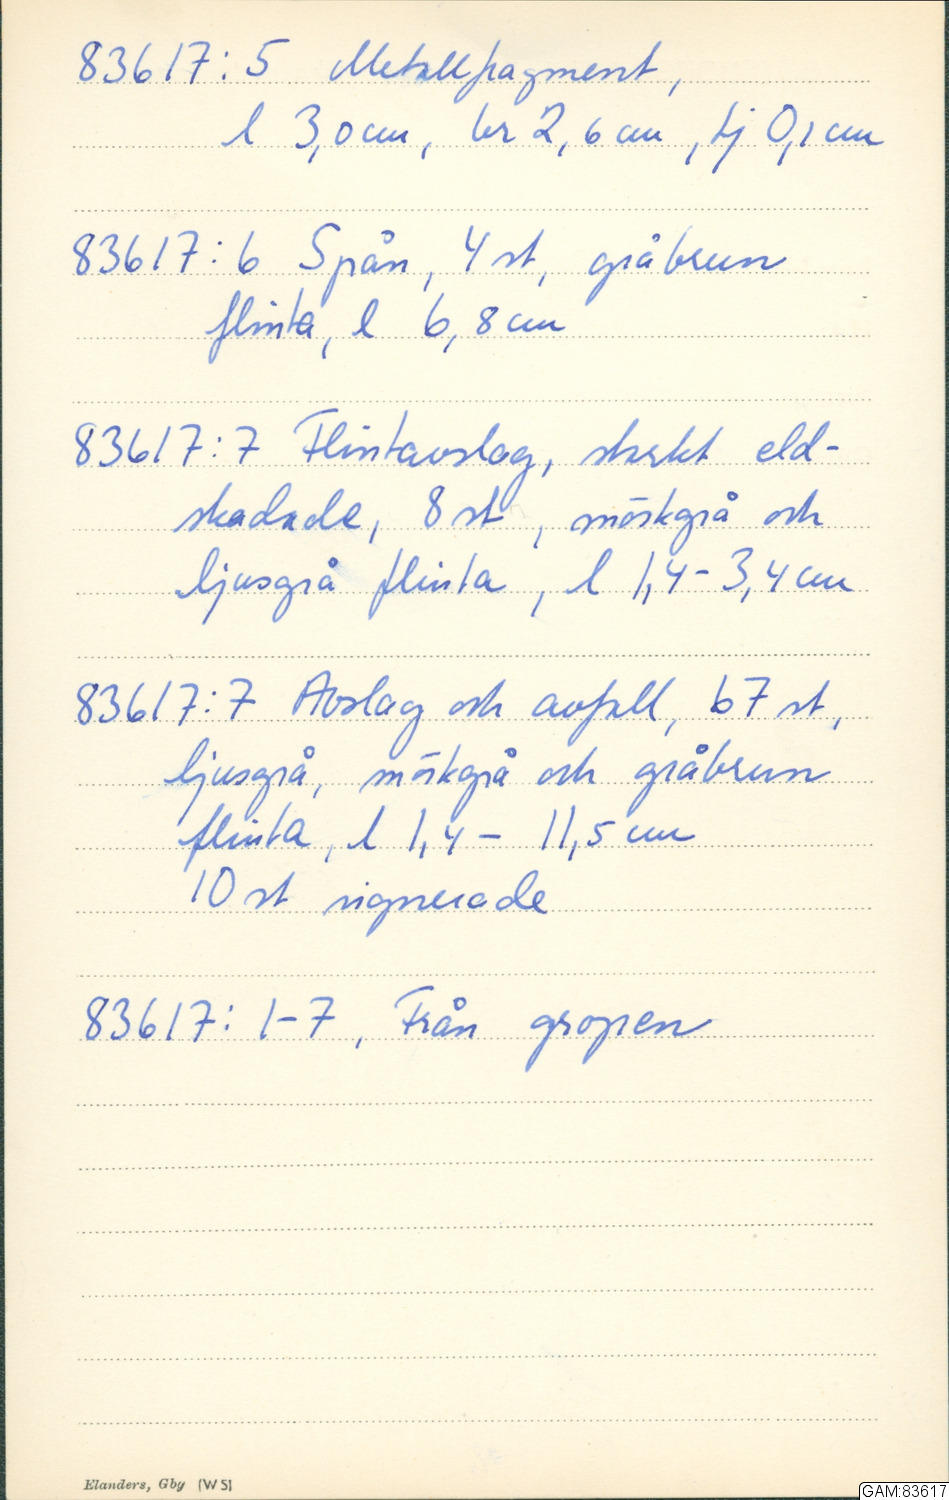 83617:5 Metallfragment,
l 3,0 cm, br 2,6 cm, tj 0,1 cm
83617:6 Spån, 4 st, gråbrun
flinta, l 6,8 cm
83617:7 Flintavslag, starkt eld-
skadade, 8 st, mörkgrå och
ljusgrå flinta, l 1,4-3,4 cm
83617:7 Avslag och avfall, 67 st,
ljusgrå, mörkgrå och gråbrun
flinta, l 1,4 - 11,5 cm
10 st signerade
83617:1-7, Från gropen
Elanders, Gby (W5)
GAM:83617